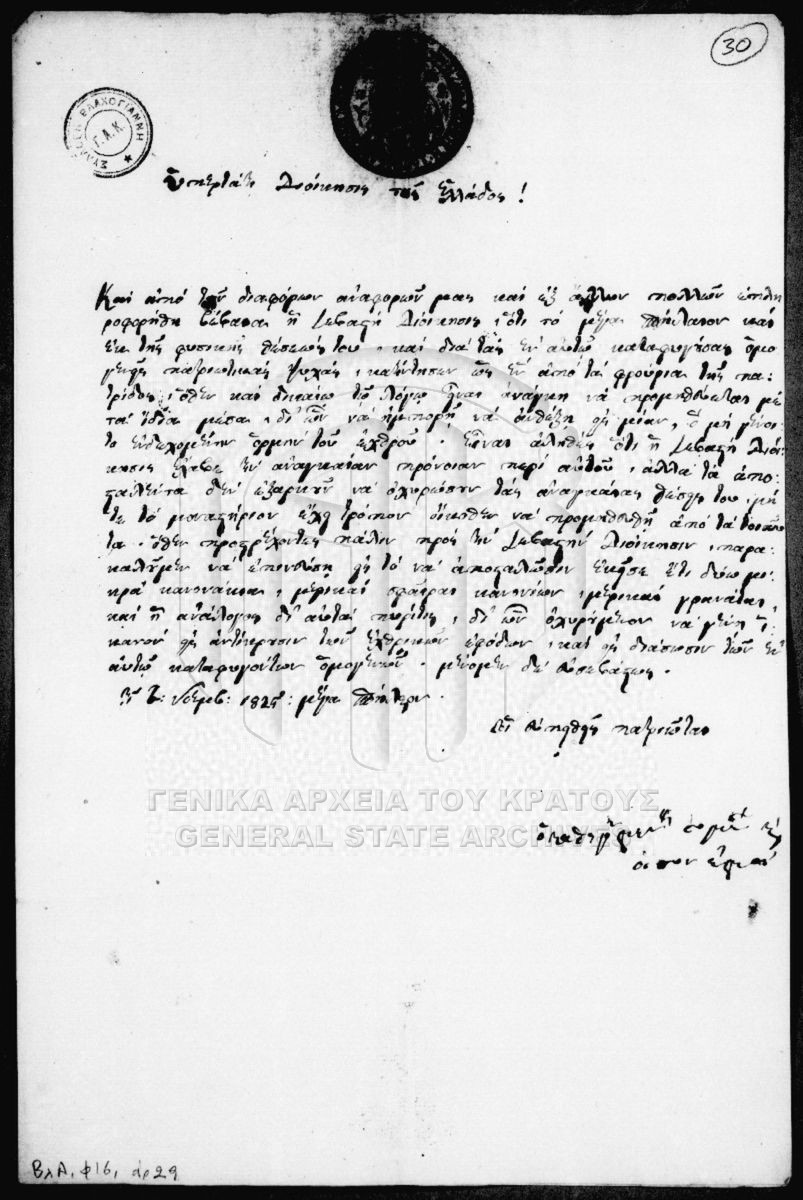 30
ΣΥΛΛΟΓΗ ΒΛΑΧΟΓΙΑΝΝΗ
Γ.Α.Κ.
Ὑπερτάτη Διοίκησις τῆς Ἑλλάδος!
Καὶ ἀπὸ τῶν διαφόρων ἀναφορῶν μας καὶ ἐξ ἄλλων πολλῶν ἐπλη
ροφορήθη βέβαια ἡ Σεβαστὴ Διοίκησις, ὅτι τὸ μέγα Σπήλαιον καὶ
ἐκ τῆς φυσικῆς θέσεώς του, καὶ διὰ τὰς ἐν αὐτῷ καταφυγούσας ὁμο
γενεῖς πατριωτικὰς ψυχάς, κατήντησεν ὡς ἓν ἀπὸ τὰ φρούρια τῆς πα:
τρίδος, ὅθεν καὶ δικαίῳ τῷ λόγῳ εἶναι ἀνάγκη νὰ προμηθεύεται μὲ
τὰ μέσα, δι' ὧν νὰ ἠμπορῇ νὰ ἀνθέξῃ εἰς μίαν, ὃ μὴ γένοι
το ἐνδεχομένην ὁρμὴν τοῦ ἐχθροῦ. Εἶναι ἀληθὲς ὅτι ἡ Σεβαστὴ Διοί
κησις ἔλαβε τὴν ἀναγκαίαν πρόνοιαν περὶ αὐτοῦ, ἀλλὰ τὰ ἀπο:
σταλέντα δὲν ἐξαρκοῦν νὰ ὀχυρώσουν τὰς ἀναγκαίας θέσεις του, μή
τε τὸ μοναστήριον ἔχει τρόπον οἴκοθεν νὰ προμηθευθῇ ἀπὸ τὰ τοιαῦ
τα. ὅθεν προστρέχοντες πάλιν πρὸς τὴν Σεβαστὴν Διοίκησιν, παρα
καλοῦμεν νὰ ἐπινεύσῃ εἰς τὸ νὰ ἀποσταλῶσιν ἔτι δύω μι
κρὰ κανονάκια, μερικαὶ σφαῖραι κανονίων, μερικαὶ γρανάται,
καὶ ἡ ἀνάλογος δι' αὐτὰ πυρῖτις, δι' ὧν ὀχυρωμένον νὰ γένῃ ἱ:
κανὸν εἰς ἀντίκρουσιν τῶν ἐχθρικῶν ἐφόδων, καὶ εἰς διάσωσιν τῶν ἐν
αὐτῷ καταφυγόντων ὁμογενῶν. μένομεν δὲ εὐσεβάστως.
Τῇ Νοεμβ: 1825: μέγα Σπήλαιον.
Οἱ εὐπειθεῖς πατριῶται
ΓΕΝΙΚΑ ΑΡΧΕΙΑ ΤΟΥ ΚΡΑΤΟΥΣ
GENERAL STATE ARCHIVES
ΒλΑ, φ16, αρ29